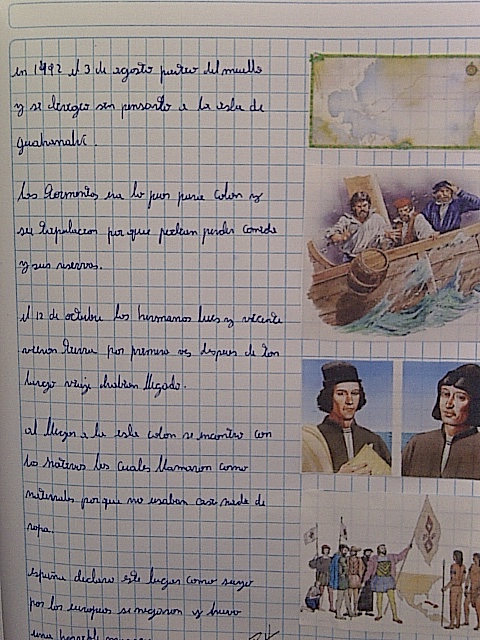 en 1492 el 3 de agosto partio del muelle
y se dirigeo sin pensarlo a la isla de
guahanahi.
las tormentas era lo peor para colon y
su tripulacion por que podian perder comida
y sus reservas.
el 12 de octubre los hermanos luis y vicente
vieron tierra por primera ves despues de tan
largo viaje habian llegado.
al llegar a la isla colon se encontro con
los nativos los cuales llamaron como
naturales por que no usaban casi nada de
ropa.
españa declaro este lugar como suyo
por los europeos se negaron y hubo
una